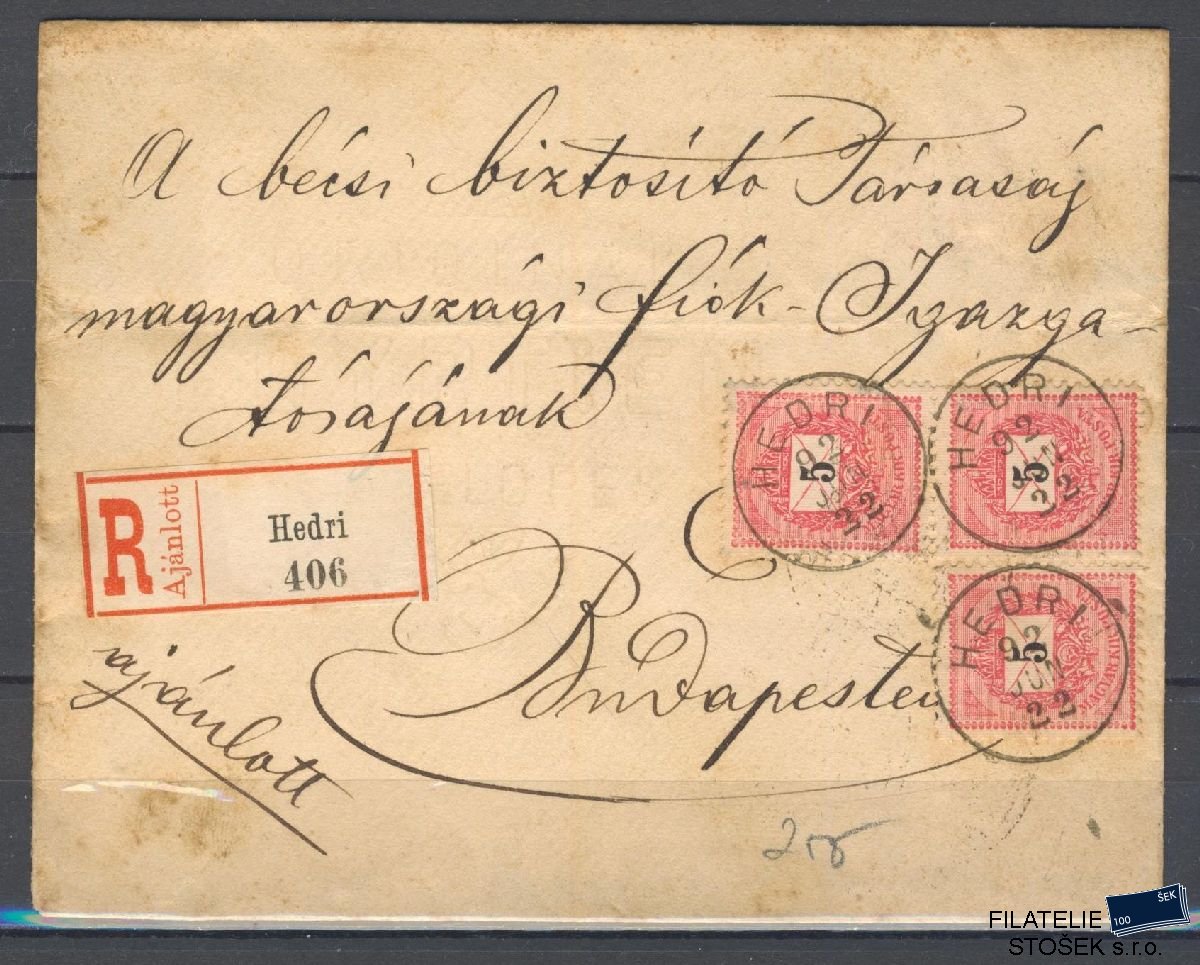 A bécsi biztosító Társaság
magyarországi fiók-Igazga-
tóságának
R
Ajánlott
Hedri
406
ajánlott
Budapesten
HEDRI
92
JUN
22
5
HEDRI
92
JUN
22
5
HEDRI
92
JUN
22
5
FILATELIE
STOŠEK s.r.o.
100
ŠEK